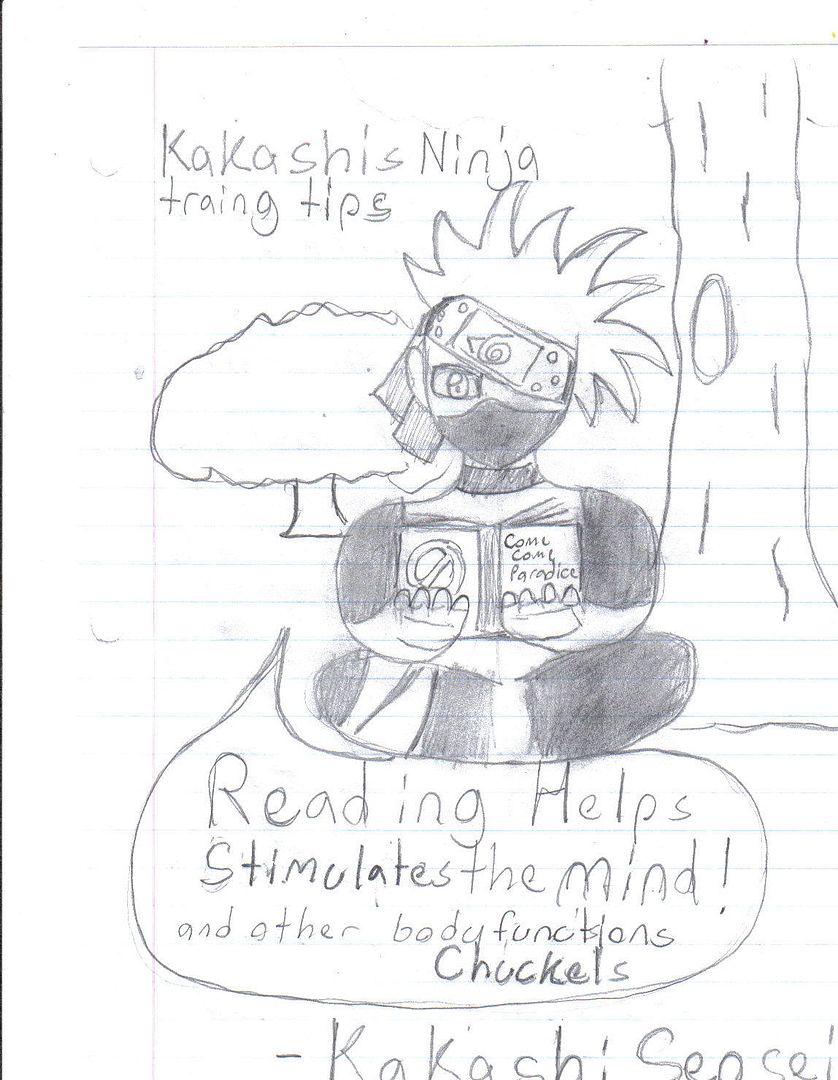 Kakashis Ninja
traing tips
Come
Come
Paradice
Reading Helps
Stimulates the mind!
and other body functions
Chuckels
- Kakashi Sensei